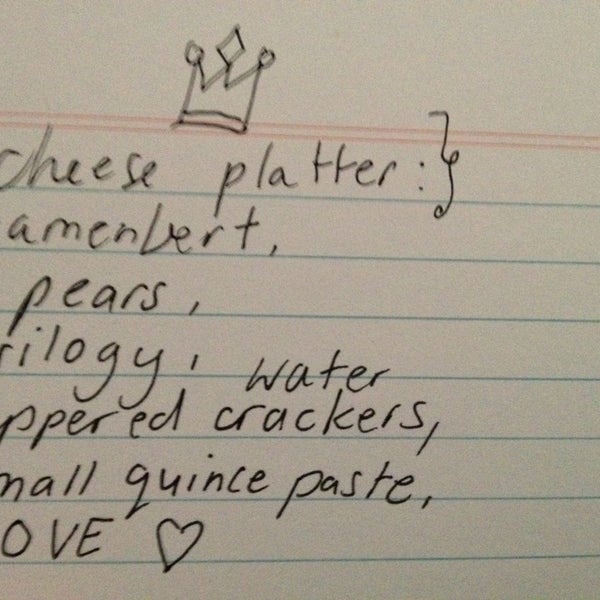 cheese platter :}
amenbert,
pears,
rilogy, water
ppered crackers,
mall quince paste,
OVE ♡